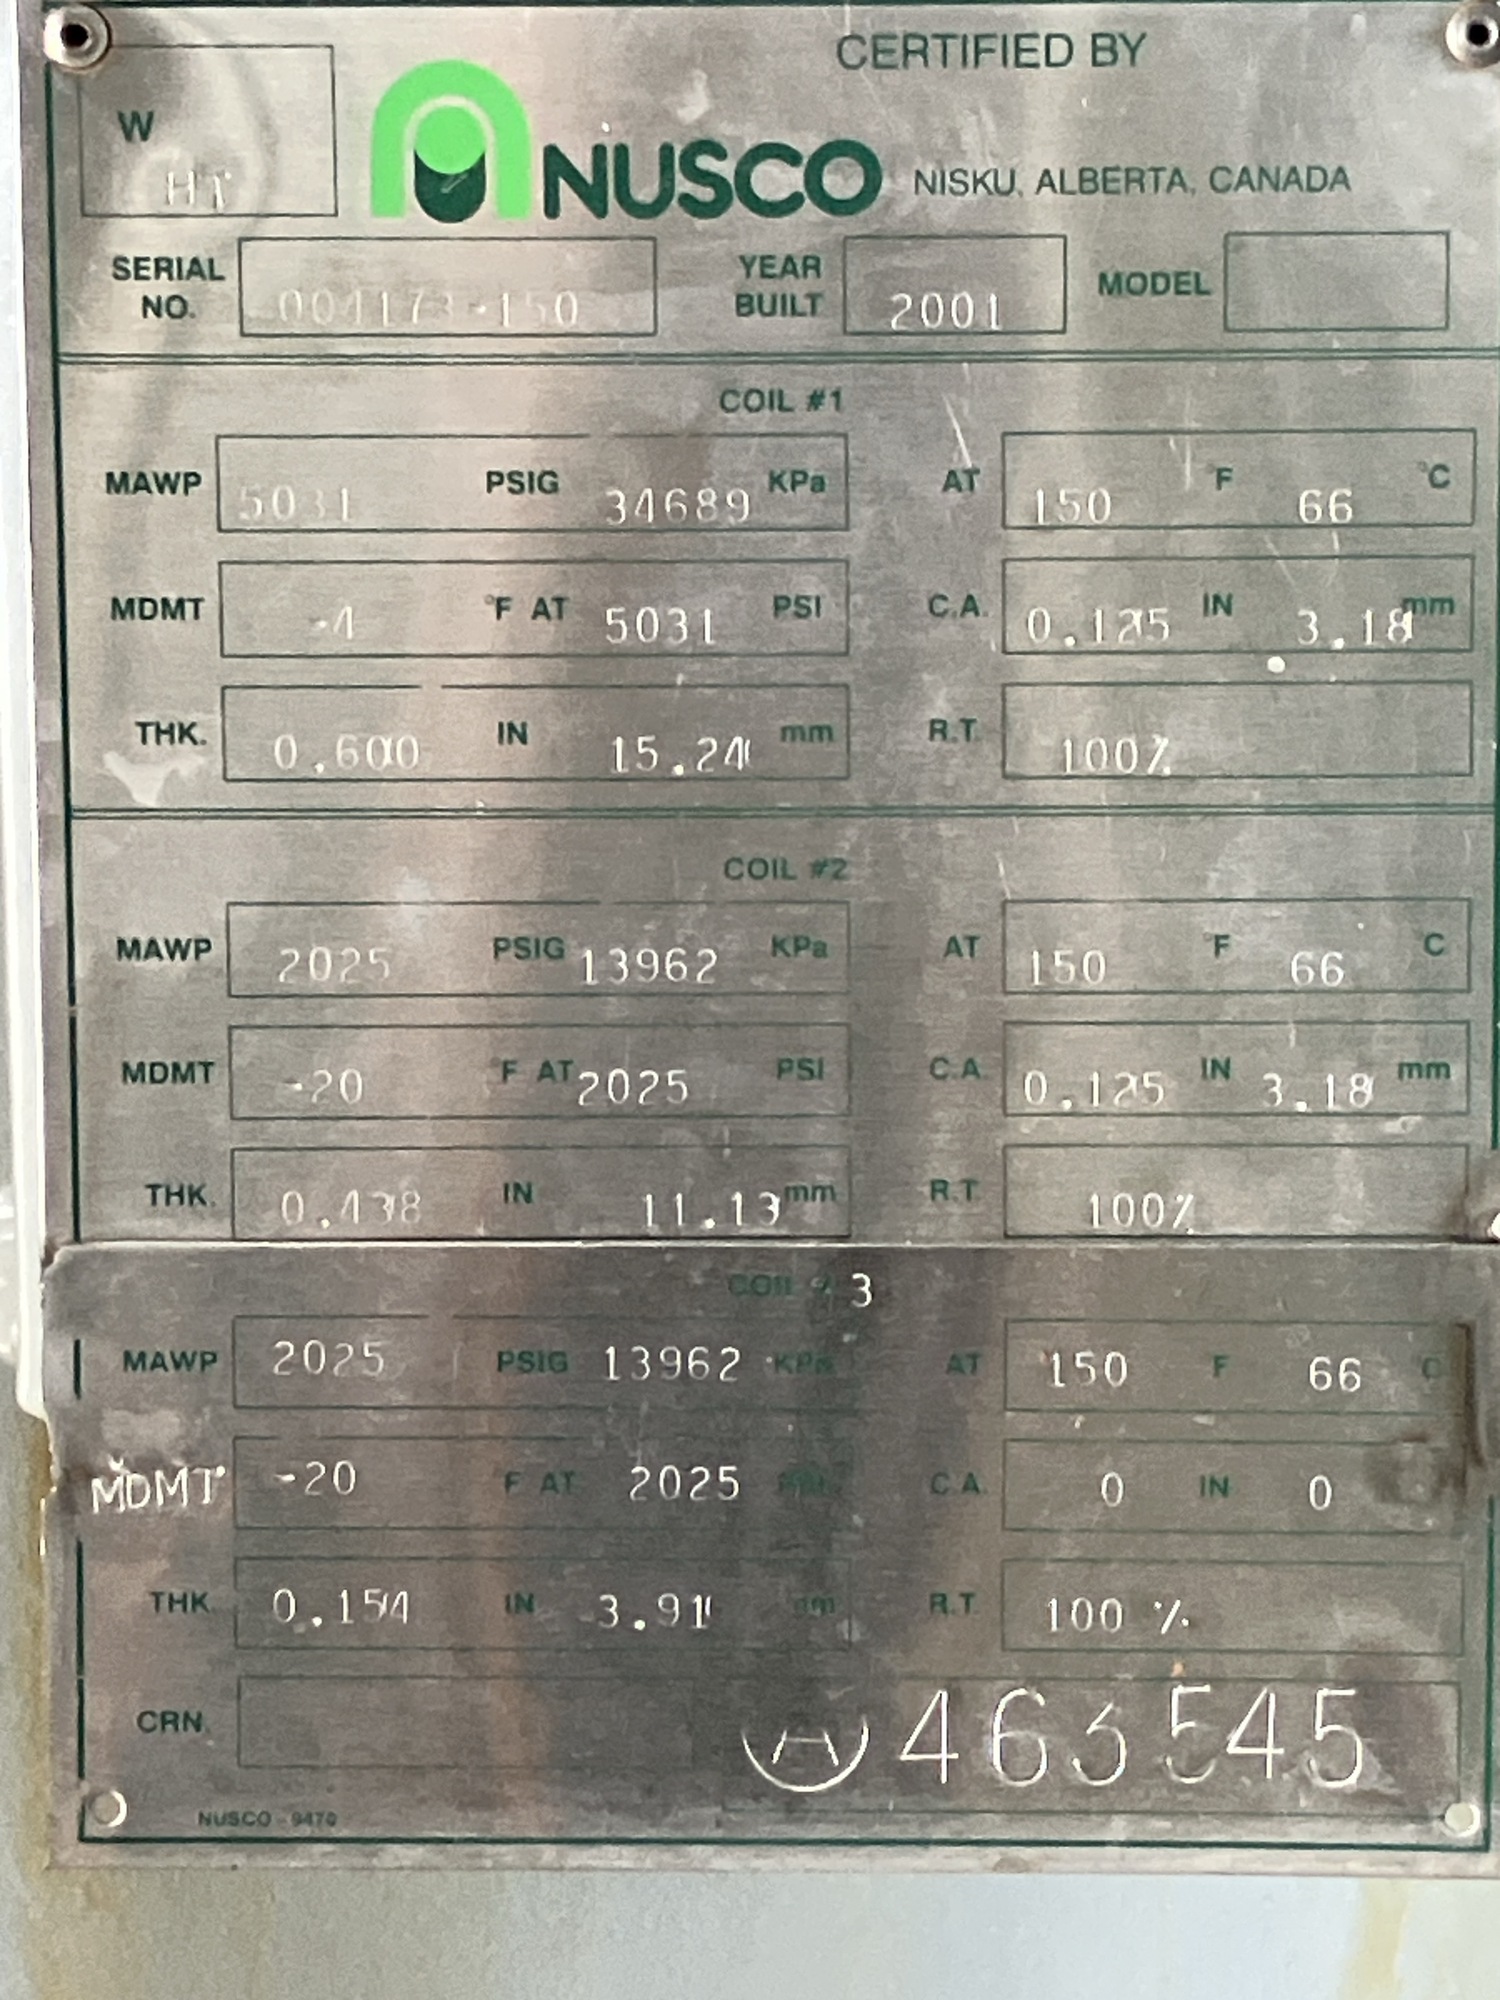 CERTIFIED BY
W
HT
NUSCO NISKU, ALBERTA, CANADA
SERIAL NO. 004173-150 YEAR BUILT 2001 MODEL
COIL #1
MAWP 5031 PSIG 34689 KPa AT 150 °F 66 °C
MDMT -4 °F AT 5031 PSI C.A. 0.125 IN 3.18 mm
THK. 0.600 IN 15.24 mm R.T. 100%
COIL #2
MAWP 2025 PSIG 13962 KPa AT 150 °F 66 C
MDMT -20 F AT 2025 PSI C.A. 0.125 IN 3.18 mm
THK. 0.438 IN 11.13 mm R.T. 100%
COIL # 3
MAWP 2025 PSIG 13962 KPa AT 150 F 66 C
MDMT -20 F AT 2025 C.A. 0 IN 0
THK. 0.154 IN 3.91 mm R.T. 100 %
CRN. A 463545
NUSCO - 9470